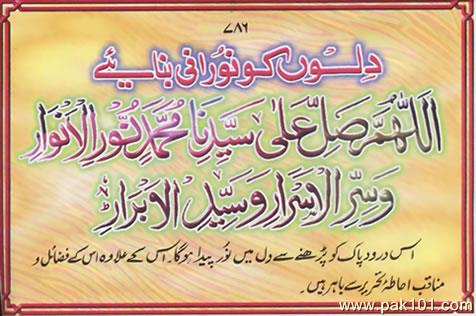 ۷۸۶
دلوں کو نورانی بنایئے
اَللّٰهُمَّ صَلِّ عَلٰى سَيِّدِنَا مُحَمَّدٍ نُّوْرِ الْاَنْوَارِ
وَسِرِّ الْاَسْرَارِ وَسَيِّدِ الْاَبْرَارِ
اس درود پاک کو پڑھنے سے دل میں نور پیدا ہوگا۔ اس کے علاوہ اس کے فضائل و
مناقب احاطۂ تحریر سے باہر ہیں۔
www.pak101.com